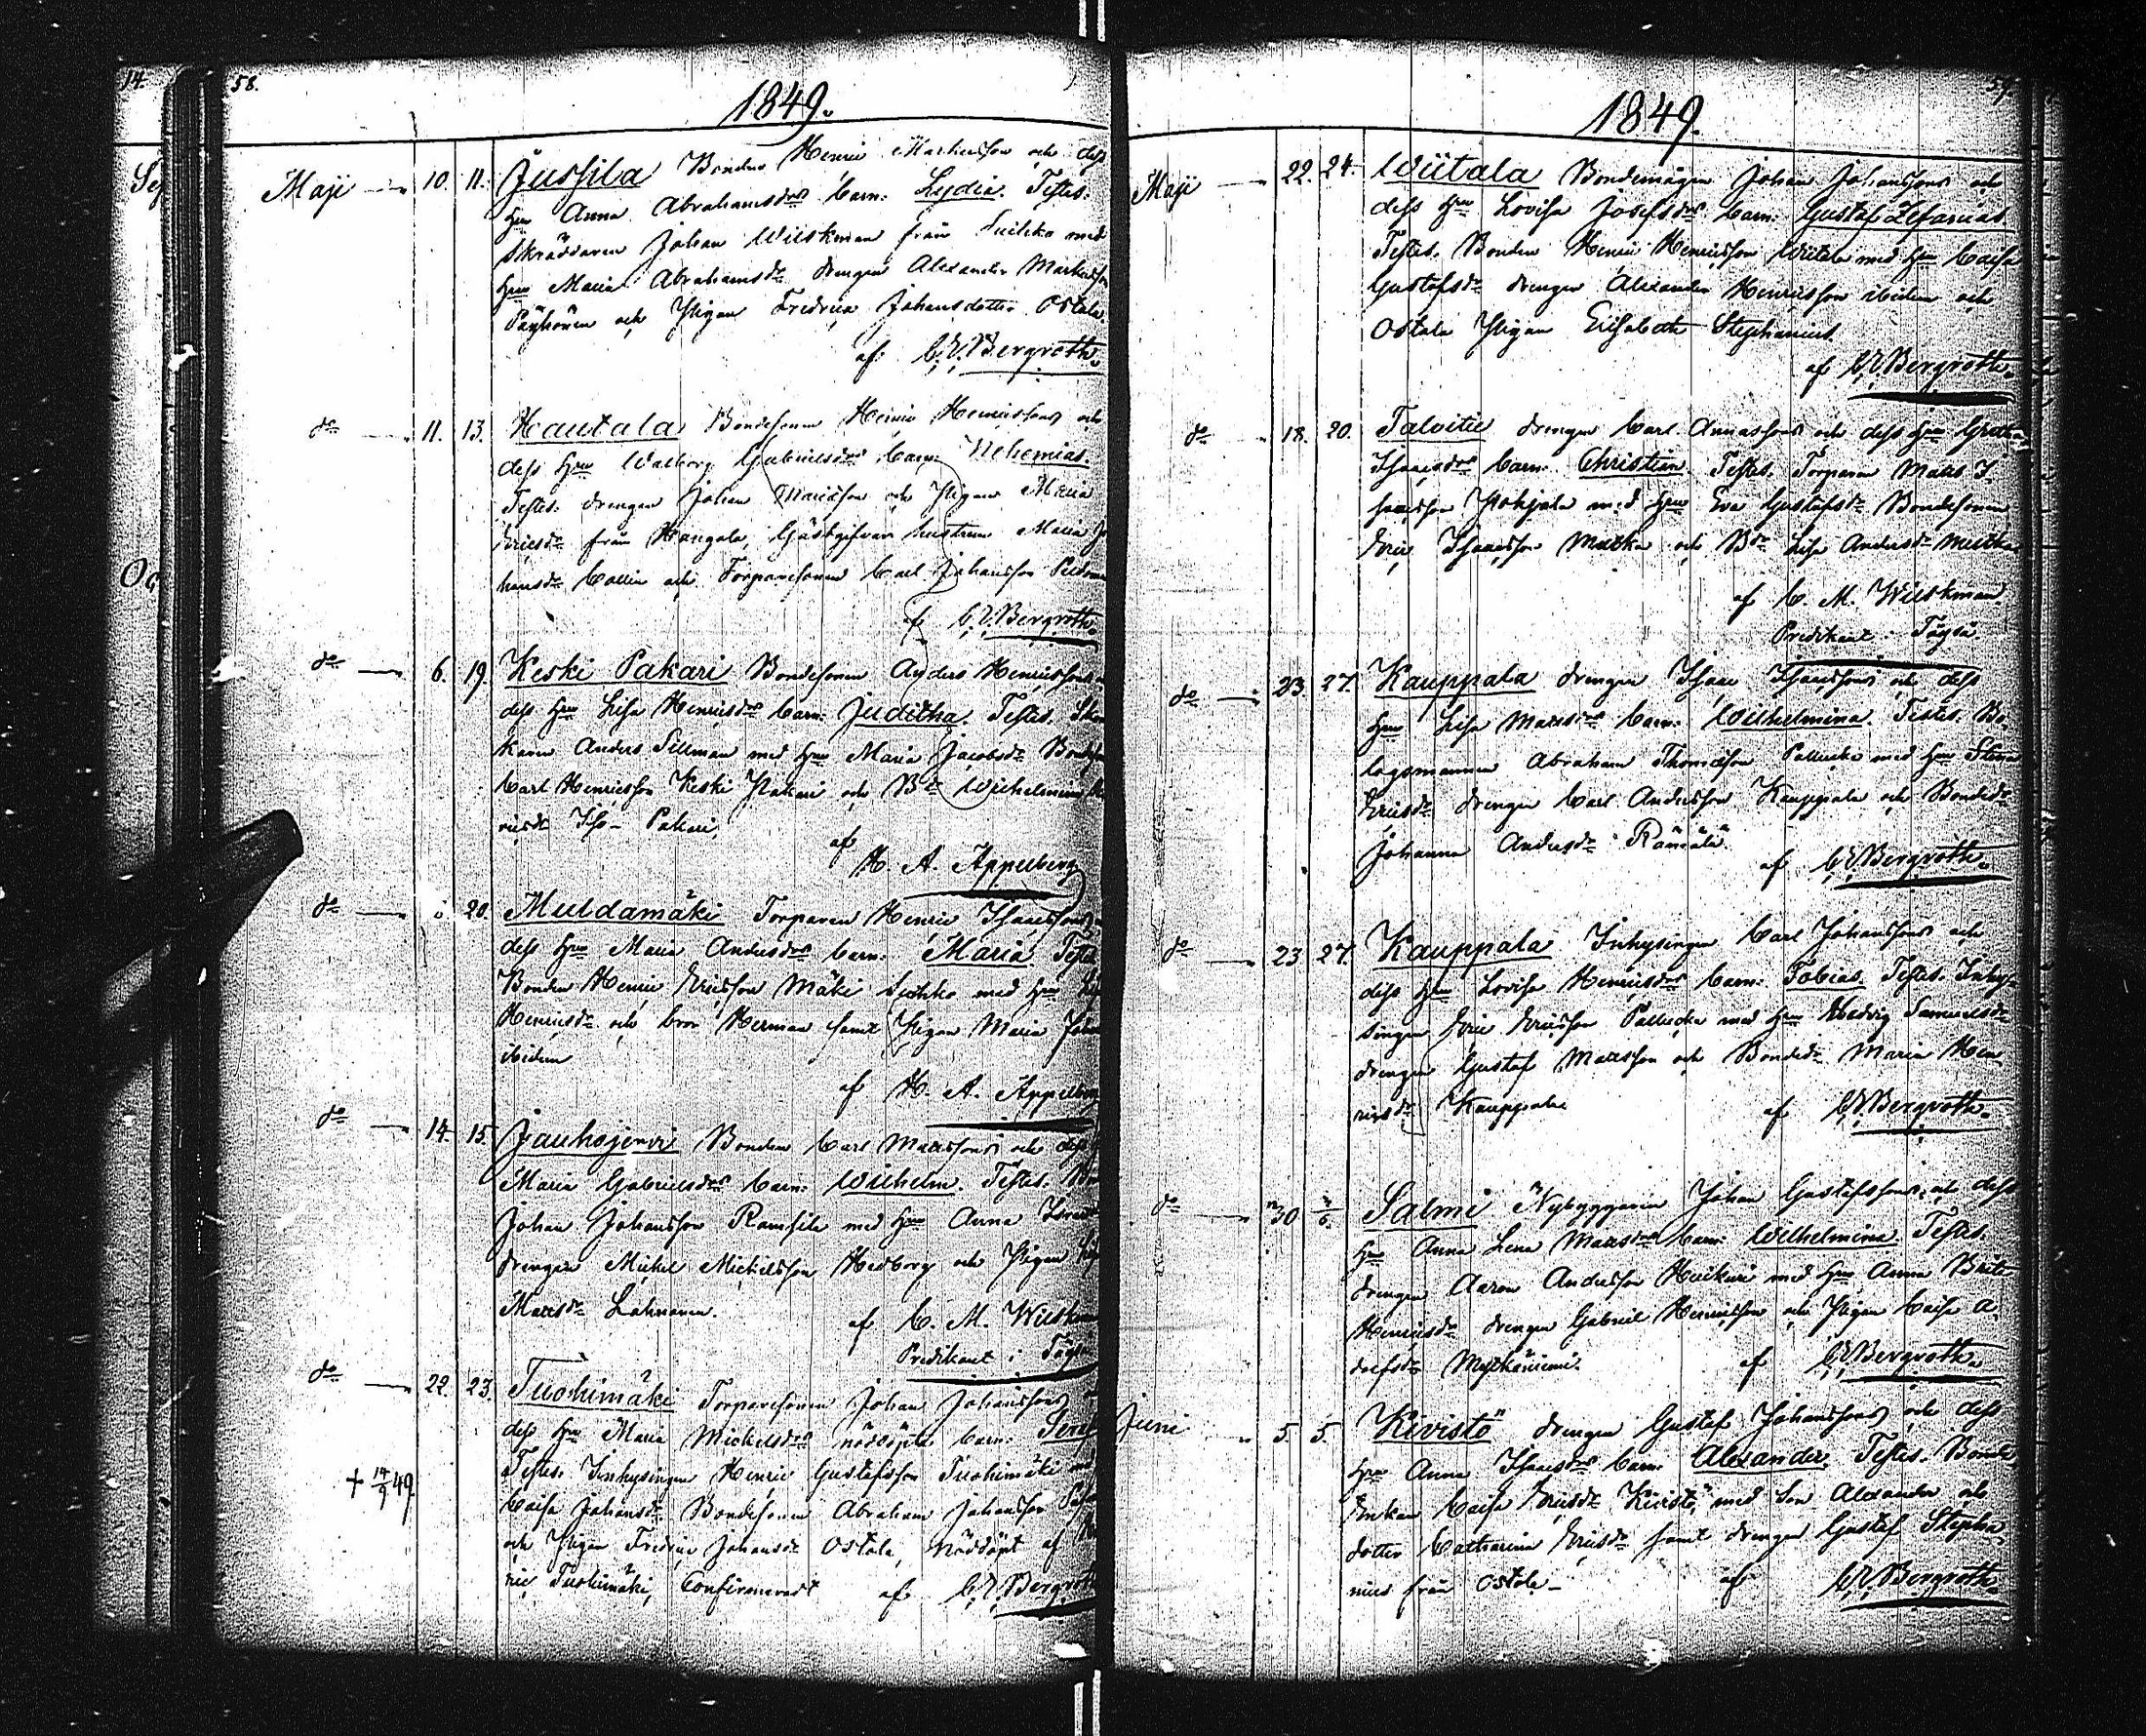 14.
58.
1849.
Maji 10. 11. Jussila Bonden Henric Markusson och dess
Hru Anna Abrahamsdrs barn: Lydia. Testes.
Skräddaren Johan Wilskman från med
Hru Maria Abrahamsdr drengen Alexander Markusson
Päyhönen och Pigan Fredrica Johansdotter Ostola.
af C.E. Bergroth.
do 11. 13. Hautala Bondesonen Henric Henricssons och
dess Hru Walborg Gabrielsdrs barn: Nehemias.
Testes. drengen Johan och Pigan Maria
Ericsdr från Kangala, Gästgifvare hustrun Maria Jo
hansdr Collin och Torparesonen Carl Johansson
af C.E. Bergroth.
do 6. 19. Keski Pakari Bondesonen Anders Henricssons
dess Hru Lisa Henricsdrs barn: Juditha. Testes.
Anders Sillman med Hru Maria Jacobsdr
Carl Henricsson Keski Pakari och Bdr Wilhelmina
ricsdr Iso-Pakari
af
H. A. Appelberg
do 20. Muldamäki Torparen Henric Isaacssons
dess Hru Maria Andersdrs barn: Maria. Testes
Bonden Henric Ericsson Mäki med Hru
Henricsdr och bror Herman samt Pigan Maria
ibidem
af H. A. Appelberg
do 14. 15. Jauhojervi Bonden Carl Mattssons och dess
Maria Gabrielsdrs barn: Wilhelm. Testes.
Johan Johansson Ramsila med Hru Anna
drengen Michel Michelsson Hedborg och Pigan
Mattsdr Lahnanen.
af C. M. Wilskman
Predikant i Töysä
do 22. 23. Tuohimäki Torparesonen Johan Johanssons
dess Hru Maria Michelsdrs nöddöpte barn:
Testes. Inhysingen Henric Gustafsson Tuohimäki med
Caisa Johansdr Bondesonen Abraham Johansson
och Pigan Fredrica Johansdr Ostola, Nöddöpt af
ric Tuohimäki, Confirmeradt af C.E. Bergroth
+ 14/9 49.
59.
1849.
Maji 22. 24. Wiitala Bondemågen Johan Johanssons och
dess Hru Lovisa Josefsdrs barn: Gustaf Zefanias
Testes. Bonden Henric Henricsson Wiitala med Hru Caisa
Gustafsdr drengen Alexander Henricsson ibidem och
Ostola Pigan Elisabeth Stephanius
af C.E. Bergroth.
do 18. 20. Talvitie drengen Carl Annassons och dess Hru Greta
Isaacsdrs barn: Christian. Testes. Torparen Matts I-
sacsson Pohjola med Hru Eva Gustafsdr Bondesonen
Eric Isaacsson Mutka och Bdr Lisa Andersdr Mutka
af C. M. Wilskman.
Predikant i Töysä
do 23. 27. Kauppala drengen Isaac Isaacssons och dess
Hru Lisa Mattsdrs barn: Wilhelmina. Testes. Bo-
lagsmannen Abraham Thomasson med Hru Stina
Ericsdr drengen Carl Andersson Kauppala och Bondedr
Johanna Andersdr Rämälä.
af C.E. Bergroth.
do 23. 27. Kauppala Inhysingen Carl Johanssons och
dess Hru Lovisa Henricsdrs barn: Tobias. Testes. Inhy-
singen Eric Ericsson med Hru Hedvig Samuelsdr
drengen Gustaf Mattsson och Bondedr Maria Hen
ricsdr Kauppala af C.E. Bergroth.
do 30 3/6. Salmi Nybyggaren Johan Gustafssons och dess
Hru Anna Lena Mattsdrs barn: Wilhelmina. Testes.
drengen Aaron Andersson med Hru Anna Brita
Henricsdr drengen Gabriel Henricsson och Pigan Caisa A-
dolfsdr af C.E. Bergroth.
Juni 5. 5. Kivistö drengen Gustaf Johanssons och dess
Hru Anna Isaacsdrs barn: Alexander. Testes. Bonde-
Enkan Caisa Ericsdr Kivistö, med Son Alexander och
dotter Catharina Ericsdr samt drengen Gustaf Stepha-
nius från Ostola- af C.E. Bergroth.